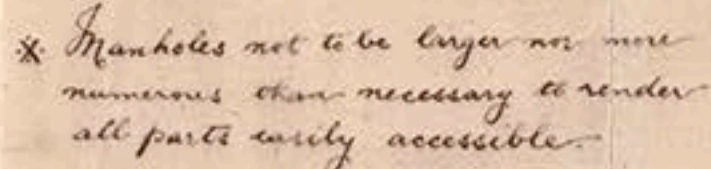 ※ Manholes not to be larger nor more
numerous than necessary to render
all parts easily accessible.